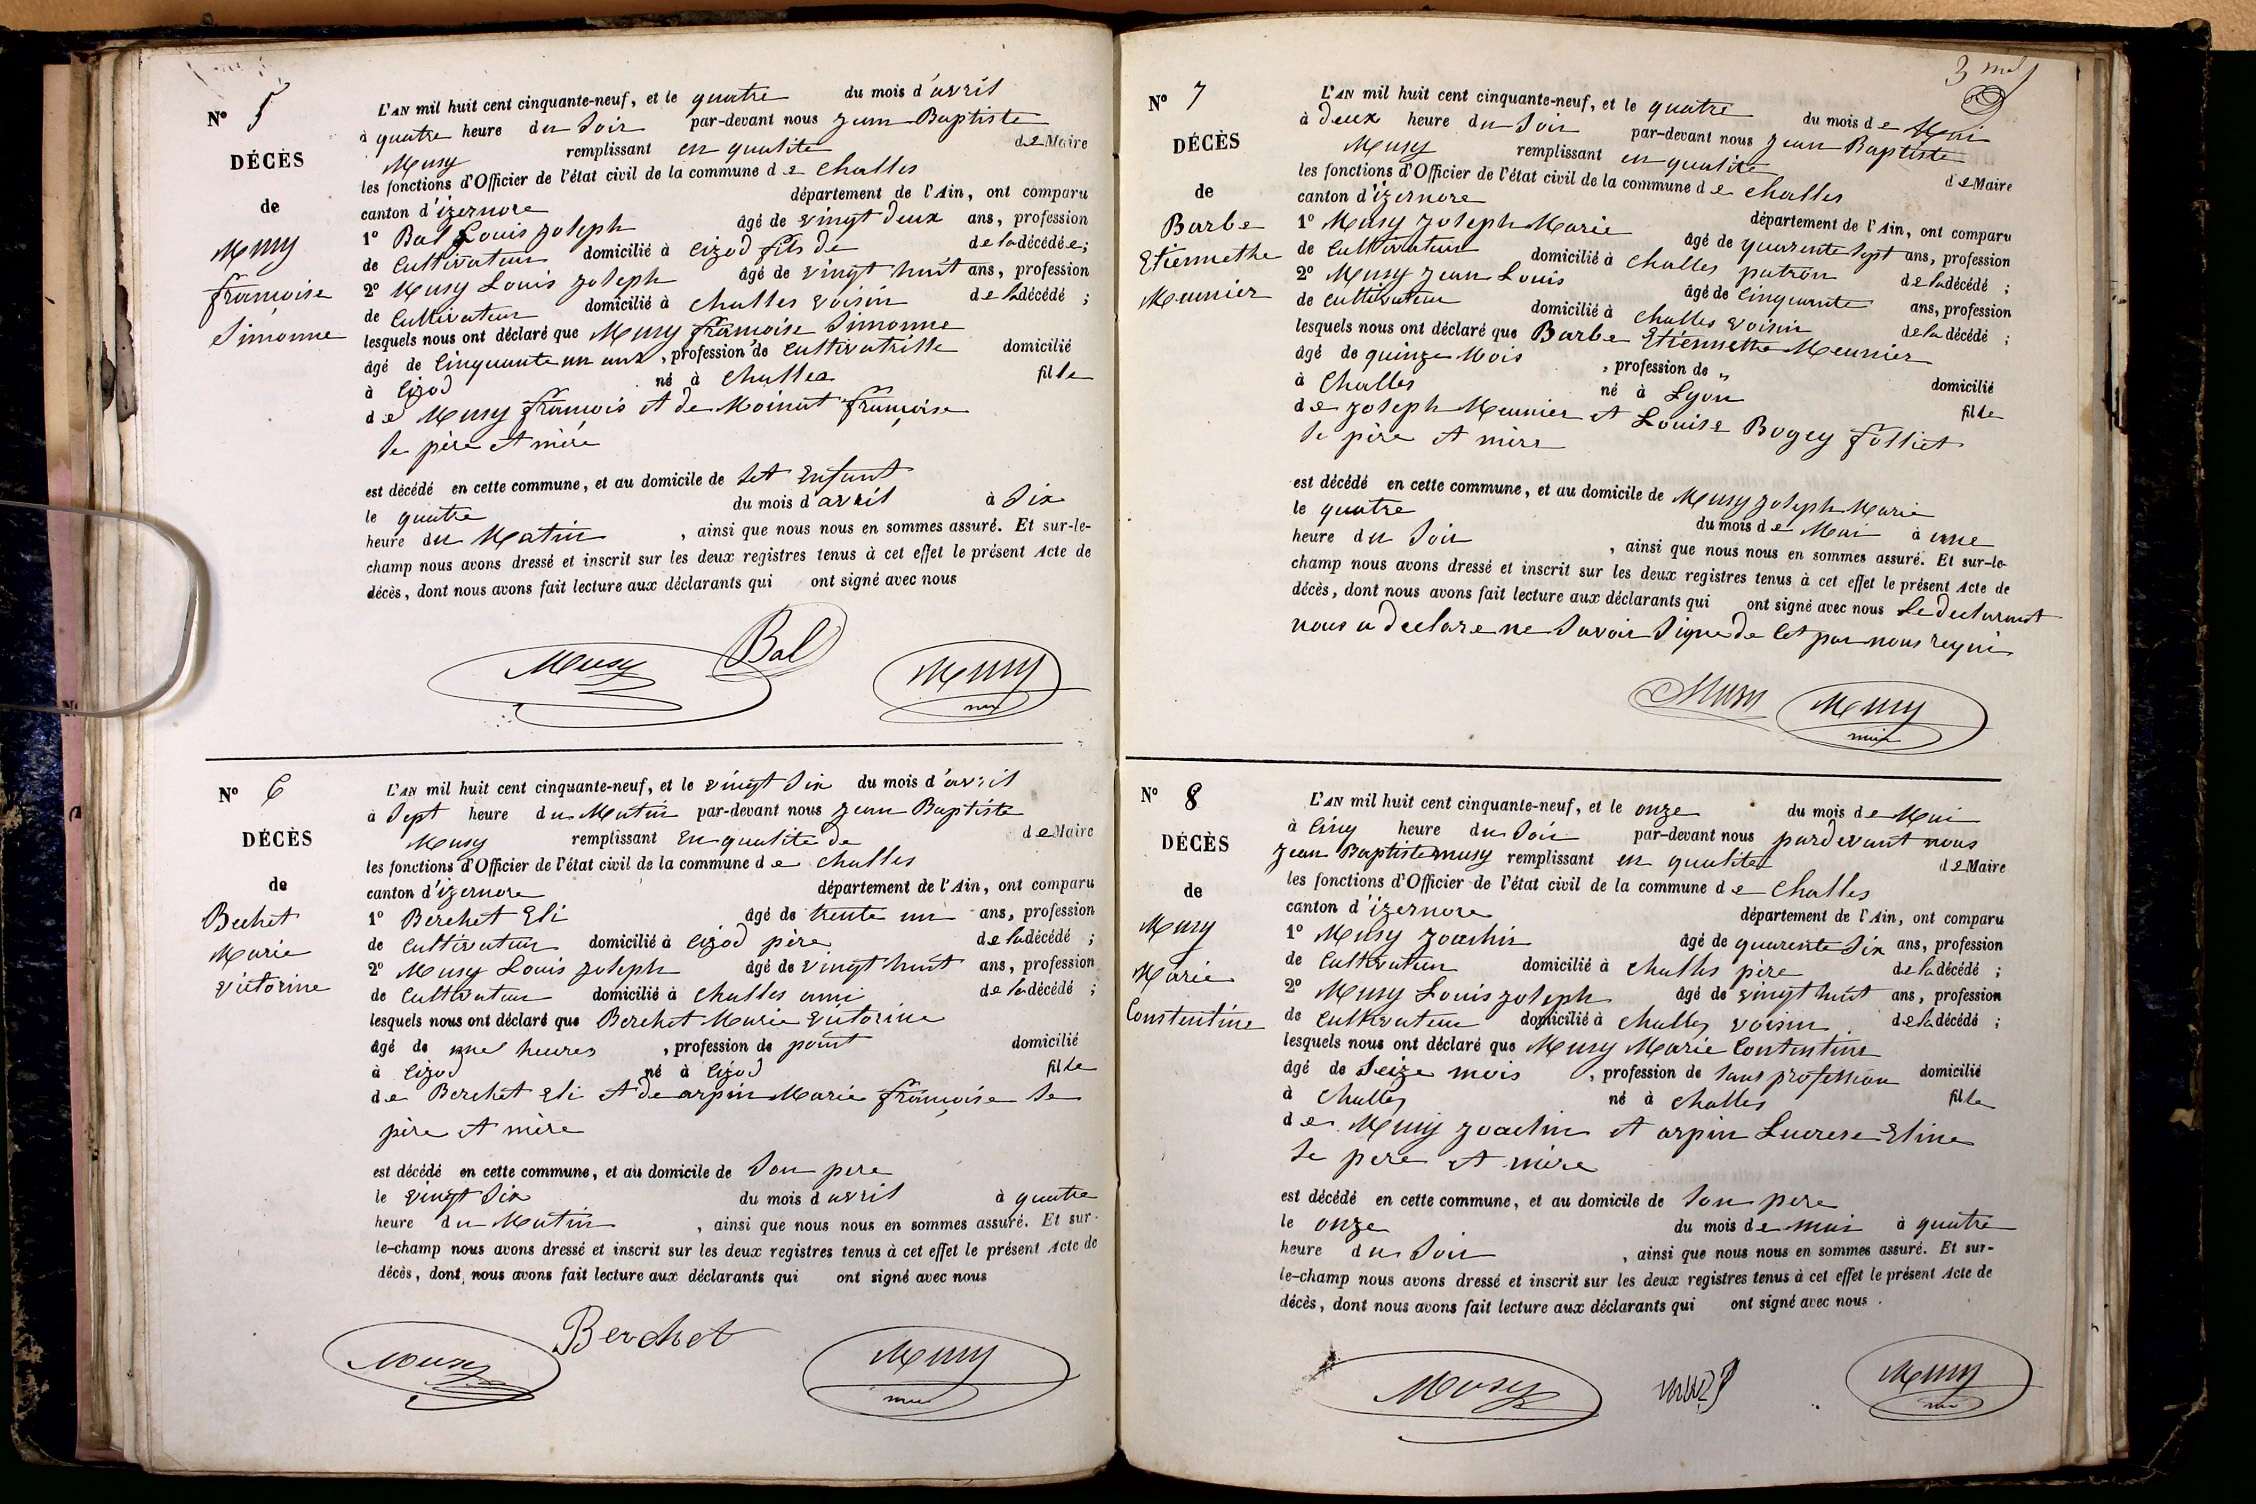 N° 5
DÉCÈS
de
Musy
françoise
Simonne
L'AN mil huit cent cinquante-neuf, et le quatre du mois d'avril
à quatre heure du Soir par-devant nous Jean Baptiste
Musy remplissant en qualité de Maire
les fonctions d'Officier de l'état civil de la commune de Challes
canton d'izernore département de l'Ain, ont comparu
1° Bal Louis Joseph âgé de vingt deux ans, profession
de Cultivateur domicilié à Cizod fils de de la décédée ;
2° Musy Louis Joseph âgé de vingt huit ans, profession
de Cultivateur domicilié à Challes voisin de la décédé ;
lesquels nous ont déclaré que Musy françoise Simonne
âgé de Cinquante un ans, profession de Cultivatrille domicilié
à Cizod né à Challes fille
de Musy françois et de Moinat françoise
Se père et mère
est décédé en cette commune, et au domicile de Set Enfant
le quatre du mois d'avril à Six
heure du Matin, ainsi que nous nous en sommes assuré. Et sur-le-
champ nous avons dressé et inscrit sur les deux registres tenus à cet effet le présent Acte de
décès, dont nous avons fait lecture aux déclarants qui ont signé avec nous
Musy Bal Musy
N° 6
DÉCÈS
de
Bechet
Marie
victorine
L'AN mil huit cent cinquante-neuf, et le vingt Six du mois d'avril
à Sept heure du Matin par-devant nous Jean Baptiste
Musy remplissant En qualité de de Maire
les fonctions d'Officier de l'état civil de la commune de Challes
canton d'izernore département de l'Ain, ont comparu
1° Berchet Eli âgé de trente un ans, profession
de Cultivateur domicilié à Cizod père de la décédé ;
2° Musy Louis Joseph âgé de vingt huit ans, profession
de Cultivateur domicilié à Challes ami de la décédé ;
lesquels nous ont déclaré que Berchet Marie victorine
âgé de une heures, profession de point domicilié
à Cizod né à Cizod fille
de Berchet Eli et de arpin Marie françoise Se
père et mère
est décédé en cette commune, et au domicile de Son pere
le vingt Six du mois d avril à quatre
heure du Matin, ainsi que nous nous en sommes assuré. Et sur-
le-champ nous avons dressé et inscrit sur les deux registres tenus à cet effet le présent Acte de
décès, dont nous avons fait lecture aux déclarants qui ont signé avec nous
Musy Berchet Musy
N° 7
DÉCÈS
de
Barbe
Etiennethe
Meunier
L'AN mil huit cent cinquante-neuf, et le quatre du mois de Mai
à deux heure du Soir par-devant nous Jean Baptiste
Musy remplissant en qualité de Maire
les fonctions d'Officier de l'état civil de la commune de Challes
canton d'izernore département de l'Ain, ont comparu
1° Musy Joseph Marie âgé de quarente Sept ans, profession
de Cultivateur domicilié à Challes patron de la décédé ;
2° Musy Jean Louis âgé de Cinquante ans, profession
de Cultivateur domicilié à Challes voisin de la décédé ;
lesquels nous ont déclaré que Barbe Etiennethe Meunier
âgé de quinze Mois, profession de " domicilié
à Challes né à Lyon fille
de Joseph Meunier et Louise Bogey folliet
Se père et mère
est décédé en cette commune, et au domicile de Musy Joseph Marie
le quatre du mois de Mai à une
heure du Soir, ainsi que nous nous en sommes assuré. Et sur-le-
champ nous avons dressé et inscrit sur les deux registres tenus à cet effet le présent Acte de
décès, dont nous avons fait lecture aux déclarants qui ont signé avec nous Le declarant
nous a declare ne Savoir Signe de Cet par nous requi
Musy Musy
N° 8
DÉCÈS
de
Musy
Marie
Constentine
L'AN mil huit cent cinquante-neuf, et le onze du mois de Mai
à Cinq heure du Soir par-devant nous pardevant nous
Jean Baptiste musy remplissant en qualité de Maire
les fonctions d'Officier de l'état civil de la commune de Challes
canton d'izernore département de l'Ain, ont comparu
1° Musy Joachin âgé de quarente Six ans, profession
de Cultivateur domicilié à Challes père de la décédé ;
2° Musy Louis Joseph âgé de vingt huit ans, profession
de Cultivateur domicilié à Challes voisin de la décédé ;
lesquels nous ont déclaré que Musy Marie Contentine
âgé de Seize mois, profession de Sans profession domicilié
à Challes né à Challes fille
de Musy Joachin et arpin Lucrese Eline
Se pere et mère
est décédé en cette commune, et au domicile de Son pere
le onze du mois de mai à quatre
heure du Soir, ainsi que nous nous en sommes assuré. Et sur-
le-champ nous avons dressé et inscrit sur les deux registres tenus à cet effet le présent Acte de
décès, dont nous avons fait lecture aux déclarants qui ont signé avec nous.
Musy Musy